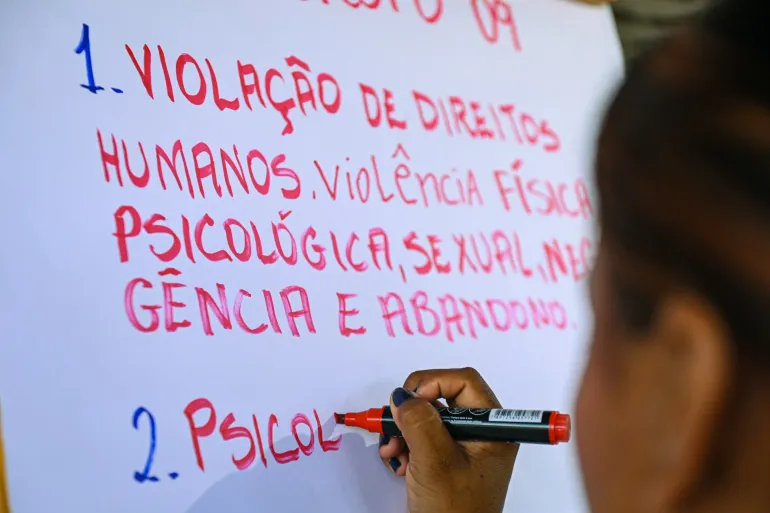 09
1. VIOLAÇÃO DE DIREITOS
HUMANOS. VIOLÊNCIA FÍSICA
PSICOLÓGICA, SEXUAL, NEG
GÊNCIA E ABANDONO.
2. PSICOL